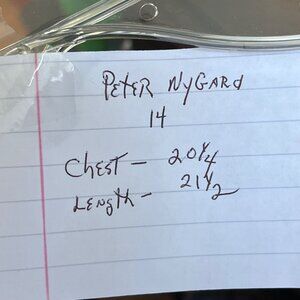 PETER NyGARd
14
ChesT - 20 1/4
LENgth - 21 1/2